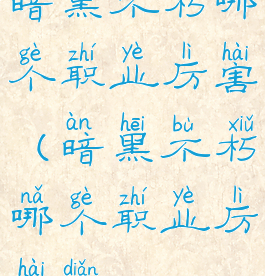 暗黑不朽哪
gè zhí yè lì hài
个职业厉害
àn hēi bù xiǔ
（暗黑不朽
nǎ gè zhí yè lì
哪个职业厉
hài diǎn